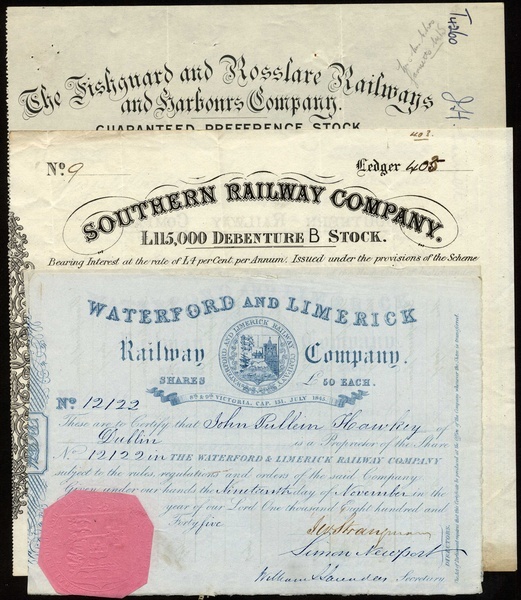 T4260
The Fishguard and Rosslare Railways
and Harbours Company.
GUARANTEED PREFERENCE STOCK
No. 9
Ledger 405
SOUTHERN RAILWAY COMPANY.
£115,000 DEBENTURE B STOCK.
Bearing Interest at the rate of £4 per Cent. per Annum. Issued under the provisions of the Scheme
WATERFORD AND LIMERICK
Railway Company.
SHARES £50 EACH.
8TH & 9TH VICTORIA, CAP. 131, JULY 1845.
No. 12122
These are to Certify that John Pullein Hawkey of
Dublin is a Proprietor of the Share
No. 12122 in THE WATERFORD & LIMERICK RAILWAY COMPANY
subject to the rules, regulations and orders of the said Company
Given under our hands the Nineteenth day of November in the
year of our Lord One thousand Eight hundred and
Forty five
Strangman
Simon Newport
DIRECTORS.
William Saunders Secretary